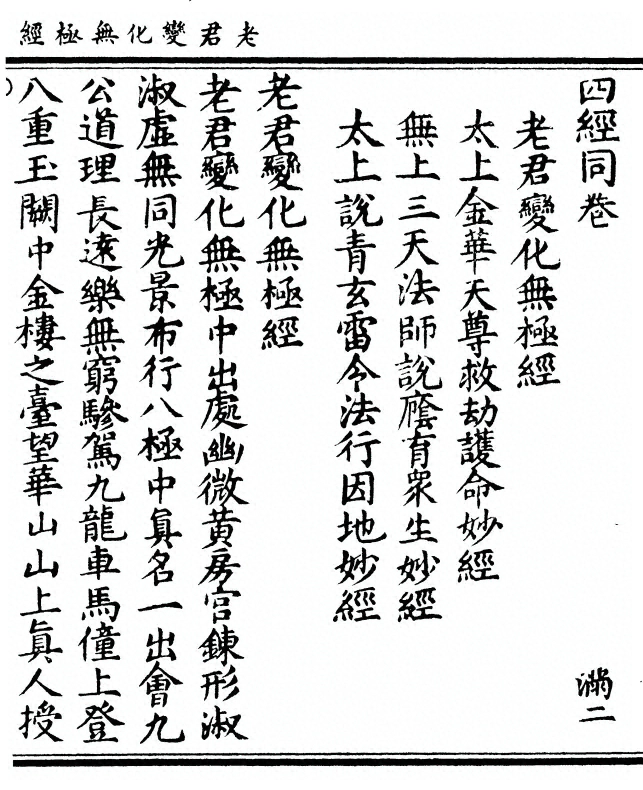 老君變化無極經
四經同卷 溺二
老君變化無極經
太上金華天尊救劫護命妙經
無上三天法師說廕育眾生妙經
太上說青玄雷令法行因地妙經
老君變化無極經
老君變化無極中出處幽微黃房宮鍊形淑
淑虛無同光景布行八極中真名一出會九
公道理長遠樂無窮驂駕九龍車馬僮上登
八重玉闕中金樓之臺望華山山上真人授